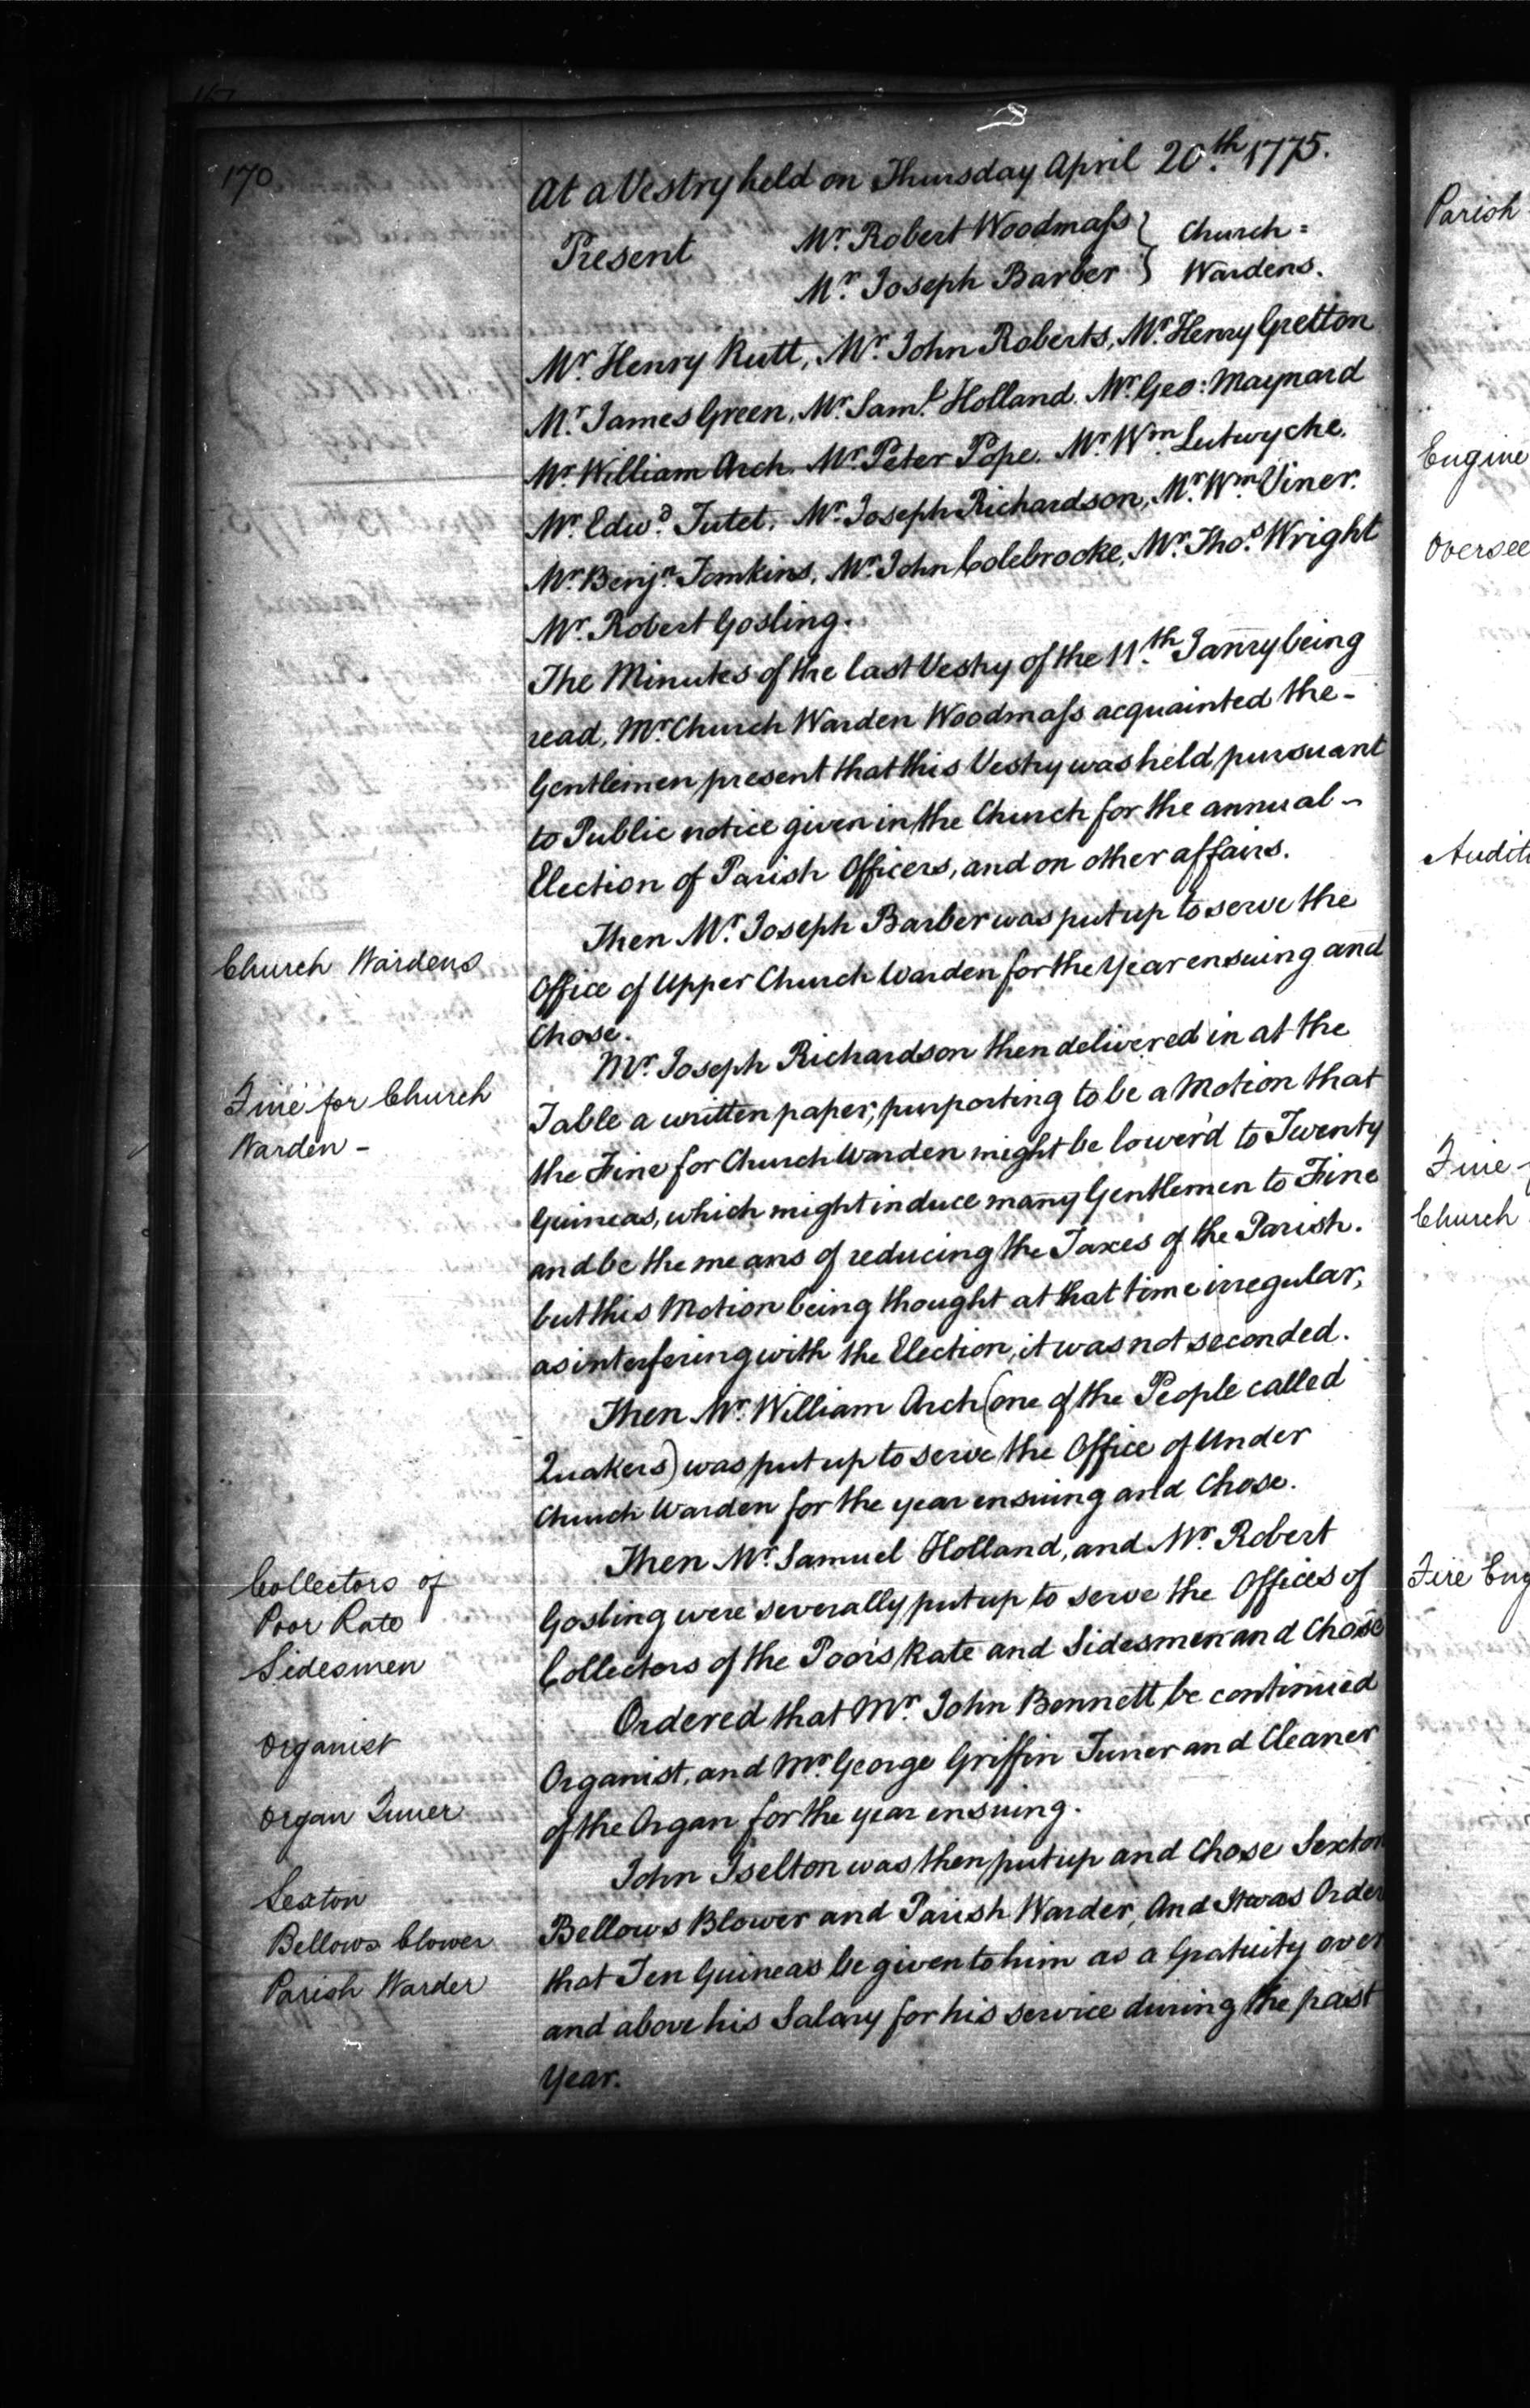 170
At a Vestry held on Thursday April 20.th 1775.
Present
Mr. Robert Woodmaſs } Church =
Mr. Joseph Barber } Wardens.
Mr. Henry Rutt, Mr. John Roberts, Mr. Henry Gretton
Mr. James Green, Mr. Sam.l Holland. Mr. Geo: Maynard
Mr. William Arch. Mr. Peter Pope. Mr. Wm. Lutwyche.
Mr. Edwd. Tutet. Mr. Joseph Richardson, Mr. Wm. Viner.
Mr. Benjn. Tomkins, Mr. John Colebrocke, Mr. Thos. Wright
Mr. Robert Gosling.
The Minutes of the last Vestry of the 11.th Janry being
read, Mr. Church Warden Woodmaſs acquainted the -
Gentlemen present that this Vestry was held pursuant
to Public notice given in the Church for the annual -
Election of Parish Officers, and on other affairs.
Church Wardens
Then Mr. Joseph Barber was put up to serve the
Office of Upper Church Warden for the Year ensuing and
Chose.
Fine for Church
Warden -
Mr. Joseph Richardson then delivered in at the
Table a written paper, purporting to be a Motion that
the Fine for Church Warden might be lower'd to Twenty
Guineas, which might induce many Gentlemen to Fine
and be the means of reducing the Taxes of the Parish.
but this Motion being thought at that time irregular,
as interfering with the Election, it was not seconded.
Then Mr. William Arch (one of the People called
Quakers) was put up to serve the Office of Under
Church Warden for the year ensuing and Chose.
Collectors of
Poor Rate
Sidesmen
Then Mr. Samuel Holland, and Mr. Robert
Gosling were severally put up to serve the Offices of
Collectors of the Poors Rate and Sidesmen and Chose
Organist
Organ Tuner
Ordered that Mr. John Bennett be continued
Organist, and Mr. George Griffin Tuner and Cleaner
of the Organ for the year ensuing.
Sexton
Bellows blower
Parish Warder
John Iselton was then put up and Chose Sexton
Bellows Blower and Parish Warder, And It was Order
that Ten Guineas be given to him as a Gratuity over
and above his Salary for his service during the past
Year.
Parish
Engine
Oversee
Audit
Fine
Church
Fire Eng